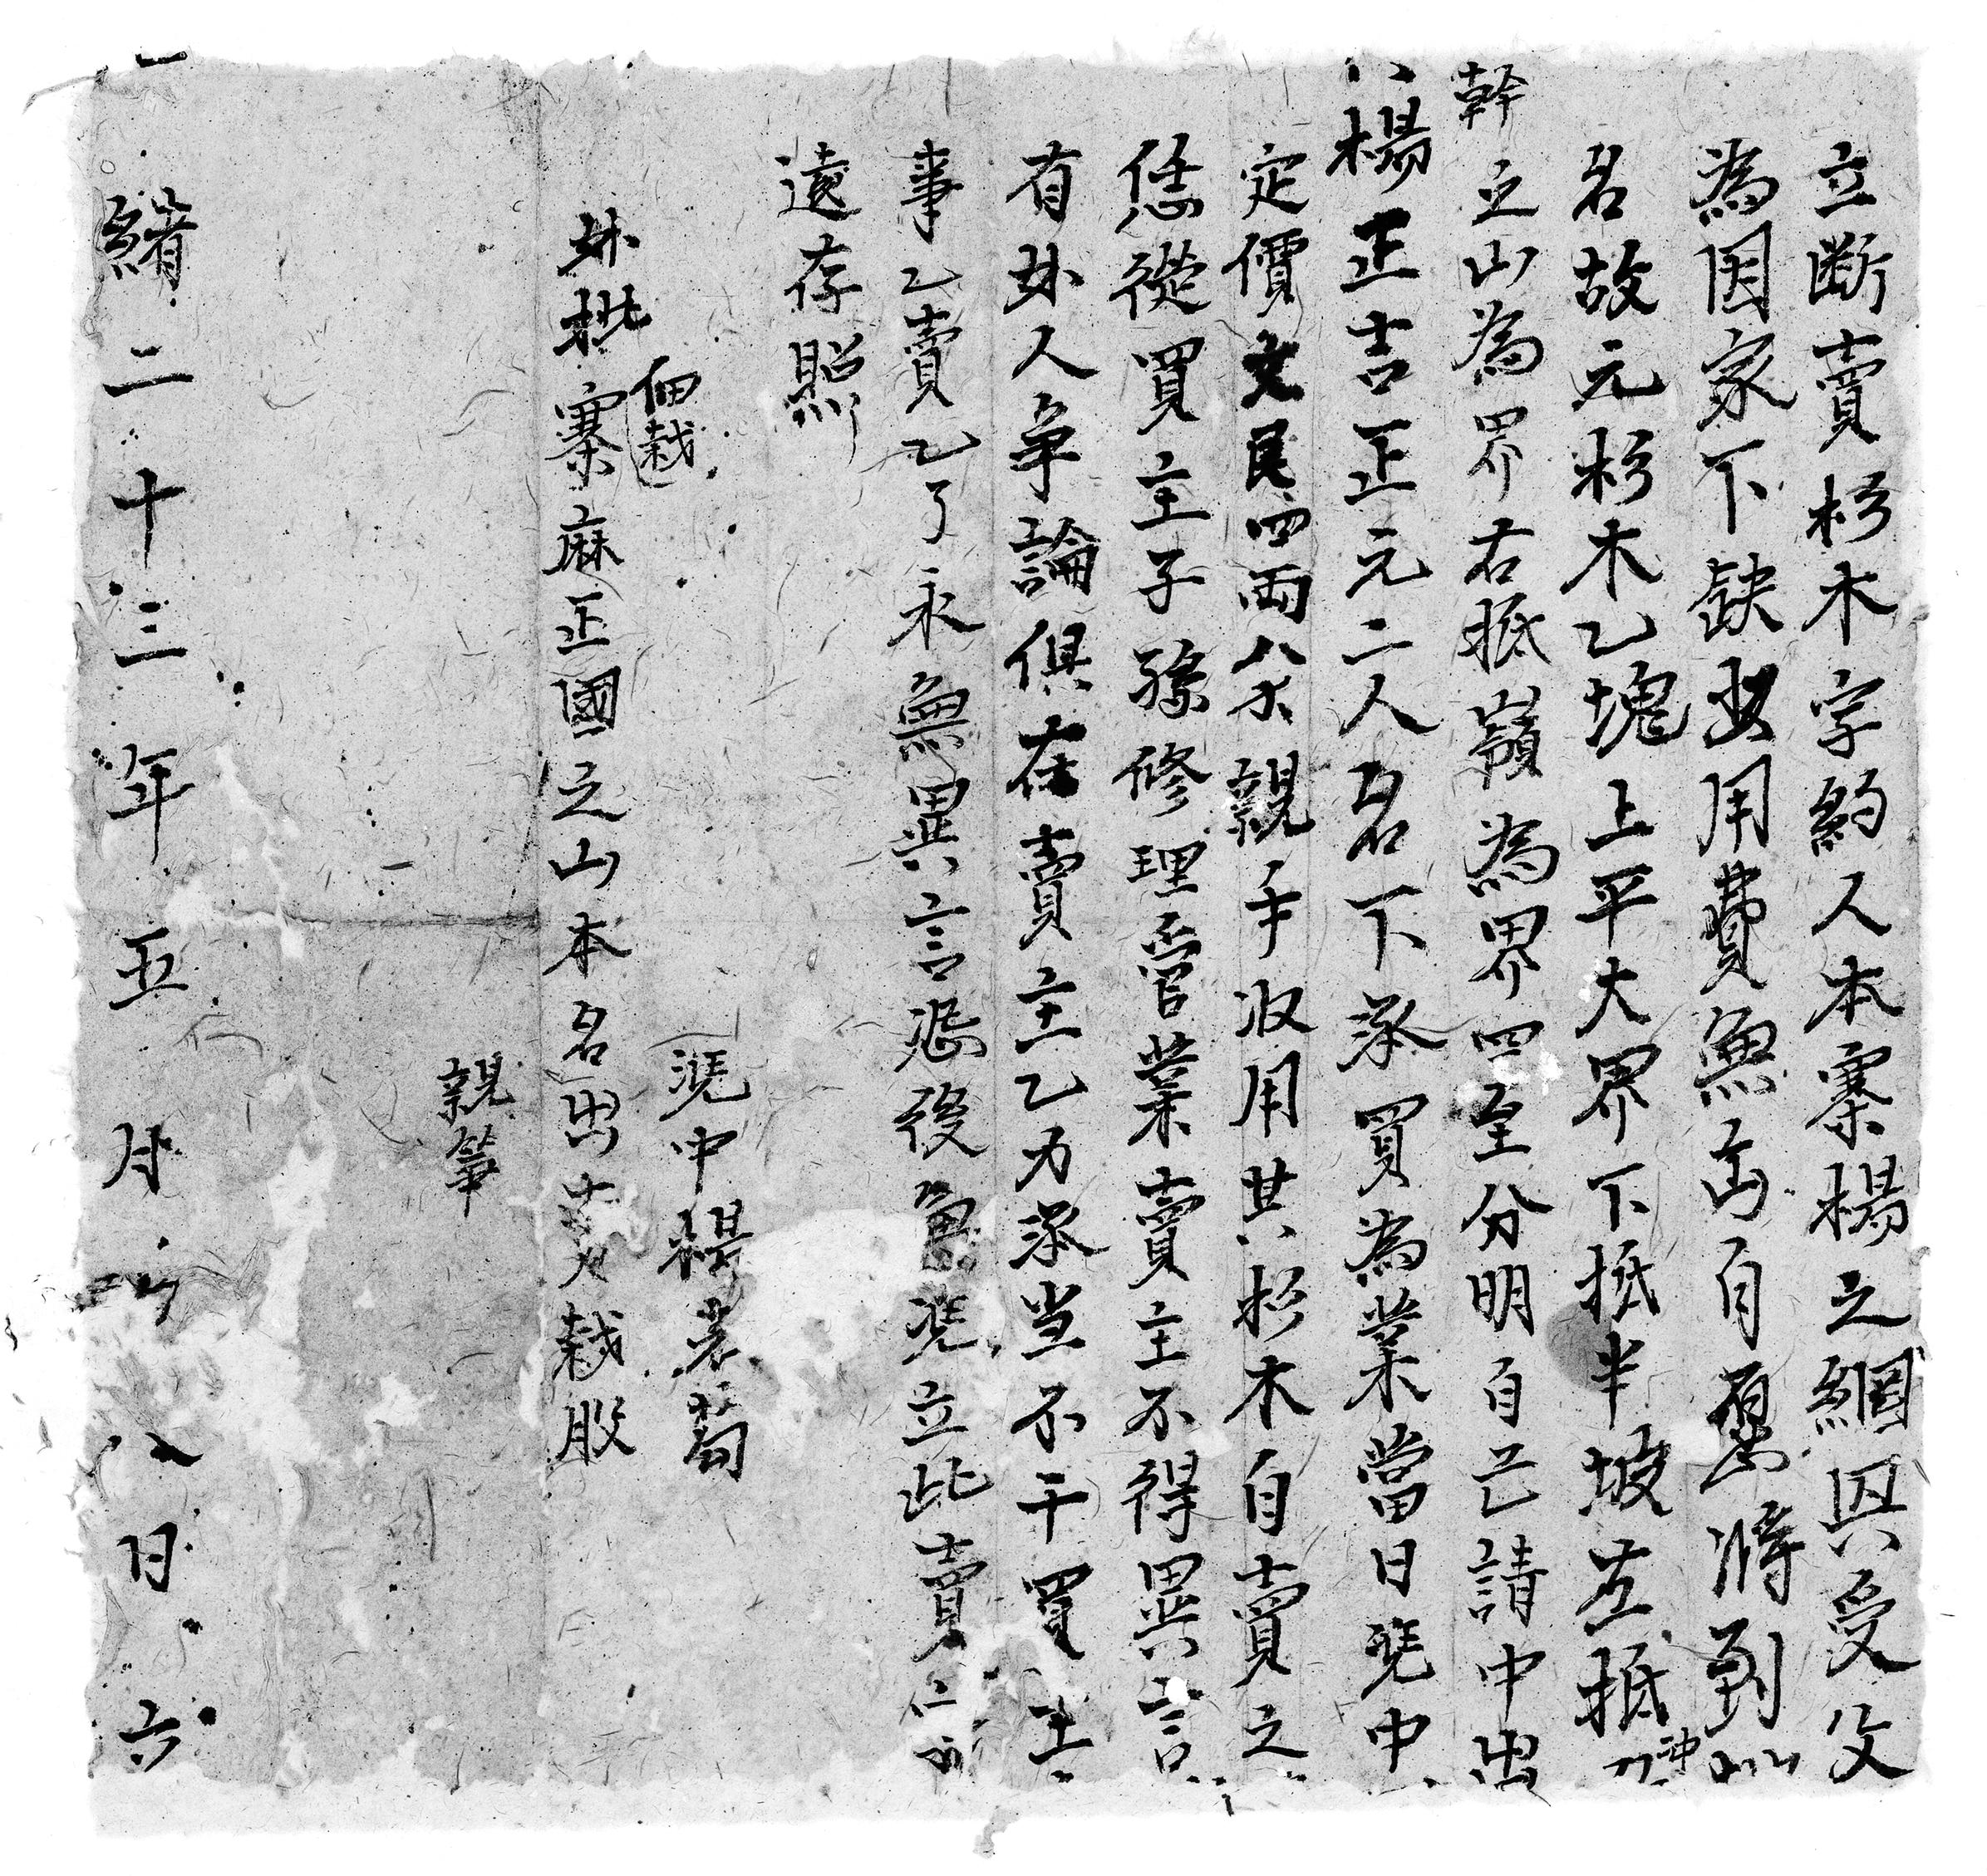 立断賣杉木字約人本寨楊之綱具受父
為因家下缺少用費無出自愿將到
名故元杉木乙塊上平大界下抵半坡左抵冲
幹之山為界右抵嶺為界四至分明自己請中出
楊正吉正元二人名下承買為業當日凭中
定價文艮四両八分親手收用其杉木自賣之
恁從買主子孫修理管業賣主不得異言
有外人争論俱在賣主乙力承当不干買主
事乙賣乙了永無異言恐後無凭立此賣
遠存照
凭中楊老茍
佃栽
外批寨麻正國之山本名出賣栽股
親筆
緒二十三年五月八日六